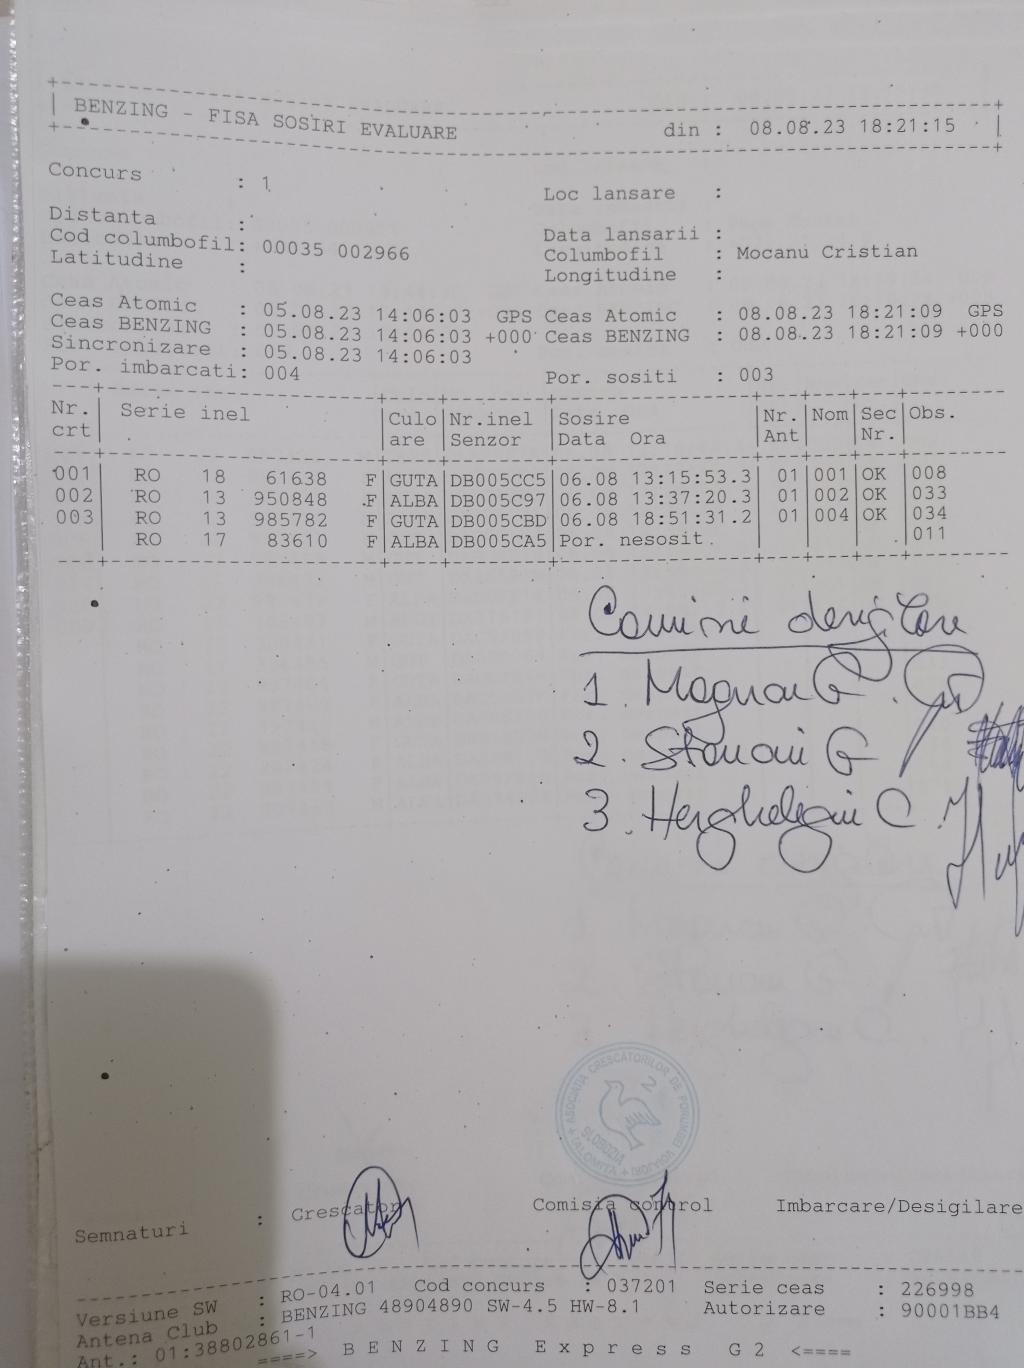 BENZING - FISA SOSIRI EVALUARE din : 08.08.23 18:21:15
Concurs : 1 Loc lansare :
Distanta : Data lansarii :
Cod columbofil: 00035 002966 Columbofil : Mocanu Cristian
Latitudine : Longitudine :
Ceas Atomic : 05.08.23 14:06:03 GPS Ceas Atomic : 08.08.23 18:21:09 GPS
Ceas BENZING : 05.08.23 14:06:03 +000 Ceas BENZING : 08.08.23 18:21:09 +000
Sincronizare : 05.08.23 14:06:03
Por. imbarcati: 004 Por. sositi : 003
Nr. Serie inel Culo Nr.inel Sosire Nr. Nom Sec Obs.
crt are Senzor Data Ora Ant Nr.
001 RO 18 61638 F GUTA DB005CC5 06.08 13:15:53.3 01 001 OK 008
002 RO 13 950848 F ALBA DB005C97 06.08 13:37:20.3 01 002 OK 033
003 RO 13 985782 F GUTA DB005CBD 06.08 18:51:31.2 01 004 OK 034
RO 17 83610 F ALBA DB005CA5 Por. nesosit 011
1.
2. G
3. C.
ASOCIATIA CRESCATORILOR DE PORUMBEI VOIAJORI
SLOBOZIA
IALOMITA
2
Semnaturi : Crescator Comisia control Imbarcare/Desigilare
Versiune SW : RO-04.01 Cod concurs : 037201 Serie ceas : 226998
Antena Club : BENZING 48904890 SW-4.5 HW-8.1 Autorizare : 90001BB4
Ant.: 01:38802861-1
====> BENZING Express G2 <====